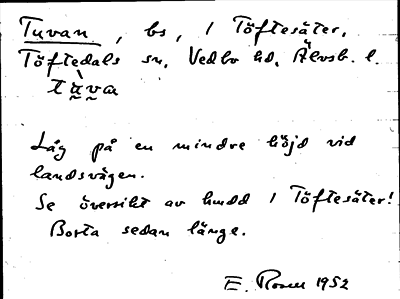 Tuvan, bs, i Töftesäter,
Töftedals sn, Vedbo hd, Älvsb. l.
tùva
Låg på en mindre höjd vid
landsvägen.
Se översikt av hmdd i Töftesäter!
Borta sedan länge.
E. Rosell 1952